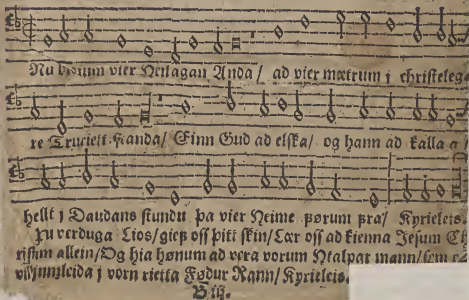 Nu bidium vier Heilagan Anda/ ad vier mættum j christelega
re Tru riett standa/ Einn Gud ad elska/ og hann ad kalla a/
hellst j Daudans stundu þa vier Heime þorum þra/ Kyrieleis.
Þu verduga Lios/ gief oss þitt skin/ Lær oss ad kienna Jesum Ch
ristum allein/ Og hia hønum ad vera vorum Hialpar mann/ sem
innleida j vorn rietta Fødur Rann/ Kyrieleis.
B iij.